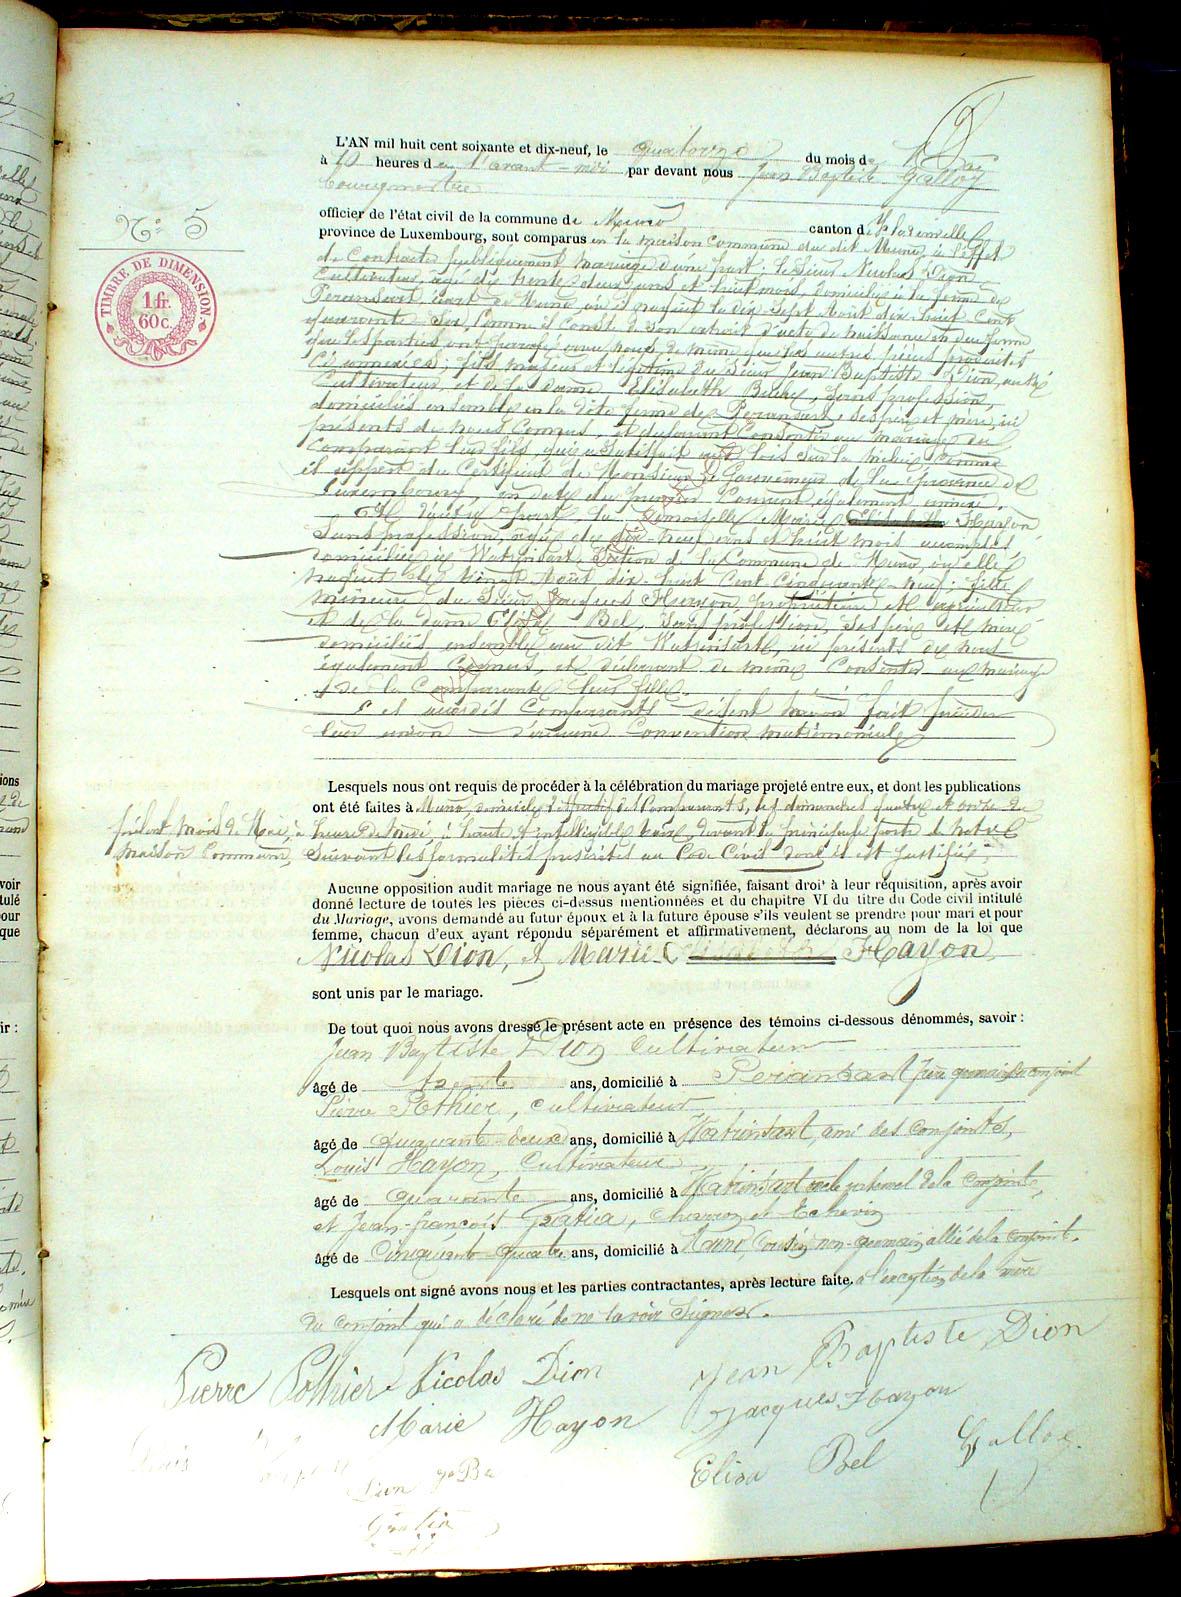 L'AN mil huit cent soixante et dix-neuf, le quatorze du mois de Mai
à 10 heures de l'avant-midi par devant nous Jean Baptiste Galloy
bourgmestre
N° 5
officier de l'état civil de la commune de Muno canton de Florenville
province de Luxembourg, sont comparus en la maison commune du dit Muno, à l'effet
TIMBRE DE DIMENSION.
1 fr.
60 c.
de contracter publiquement mariage d'une part : le Sieur Nicolas Dion
cultivateur, âgé de trente deux ans et huit mois, domicilié à la ferme de
naquit le dix-sept Août dix-huit cent
quarante-six, comme il conste de son extrait d'acte de naissance en due forme
que les parties ont de même que les autres pièces produites
et annexées ; fils majeur et légitime du Sieur Jean Baptiste Dion, aussi
cultivateur et de la dame Elisabeth sans profession,
domiciliés ensemble en la dite ferme de ses père et mère, ici
présents de nous connus, et déclarant consentir au mariage du
comparant leur fils, qui a satisfait aux lois sur la milice comme
il appert du certificat de Monsieur le Gouverneur de la province de
Luxembourg, en date du premier courant également annexé.
Et d'autre part, la Demoiselle Marie Hayon,
sans profession, âgée de dix-neuf ans et huit mois accomplis,
domiciliée à Watrinsart section de la commune de Muno, où elle
naquit le vingt Août dix-huit cent cinquante-neuf ; fille
mineure du Sieur Jacques Hayon, propriétaire et agriculteur
et de la dame Elisa Bel, sans profession, ses père et mère
domiciliés ensemble au dit Watrinsart, ici présents de nous
également connus, et déclarant de même consentir au mariage
de la comparante leur fille.
Et comparants disent n'avoir fait précéder
leur union d'aucune convention matrimoniale
Lesquels nous ont requis de procéder à la célébration du mariage projeté entre eux, et dont les publications
ont été faites à Muno, domicile des comparants, les dimanches quatre et onze du
présent mois de Mai, à l'heure de midi, à haute et intelligible voix, devant la principale porte de notre
maison commune, suivant les formalités prescrites au Code Civil dont il est justifié.
Aucune opposition audit mariage ne nous ayant été signifiée, faisant droit à leur réquisition, après avoir
donné lecture de toutes les pièces ci-dessus mentionnées et du chapitre VI du titre du Code civil intitulé
du Mariage, avons demandé au futur époux et à la future épouse s'ils veulent se prendre pour mari et pour
femme, chacun d'eux ayant répondu séparément et affirmativement, déclarons au nom de la loi que
Nicolas Dion, et Marie Hayon
sont unis par le mariage.
De tout quoi nous avons dressé le présent acte en présence des témoins ci-dessous dénommés, savoir :
Jean Baptiste Dion cultivateur
âgé de trente ans, domicilié à frère germain du conjoint
Pierre Pothier, cultivateur
âgé de quarante-deux ans, domicilié à Watrinsart, ami des conjoints,
Louis Hayon, cultivateur
âgé de quarante ans, domicilié à Watrinsart oncle paternel de la conjointe,
et Jean-françois Gratia, charron et Echevin
âgé de Cinquante-quatre ans, domicilié à Muno cousin non-germain allié de la conjointe.
Lesquels ont signé avons nous et les parties contractantes, après lecture faite, à l'exception de la mère
du conjoint qui a déclaré de ne savoir signer.
Pierre Pothier Nicolas Dion Jean Baptiste Dion
Marie Hayon Jacques Hayon
Louis Elisa Bel Galloy
Dion
Gratia